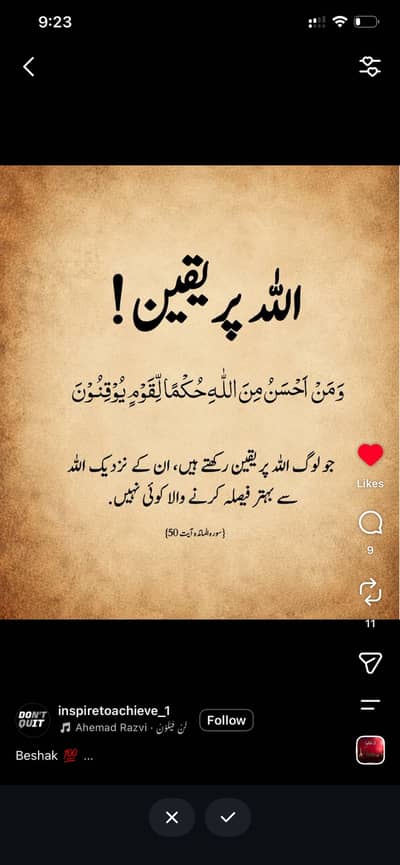 9:23
اللہ پر یقین !
وَمَنْ اَحْسَنُ مِنَ اللّٰهِ حُكْمًا لِّقَوْمٍ يُّوْقِنُوْنَ
جو لوگ اللہ پر یقین رکھتے ہیں، ان کے نزدیک اللہ
سے بہتر فیصلہ کرنے والا کوئی نہیں.
{سورہ المائدہ آیت 50}
Likes
9
11
DON'T
QUIT
inspiretoachieve_1
Ahemad Razvi ·
Follow
Beshak 💯 ...